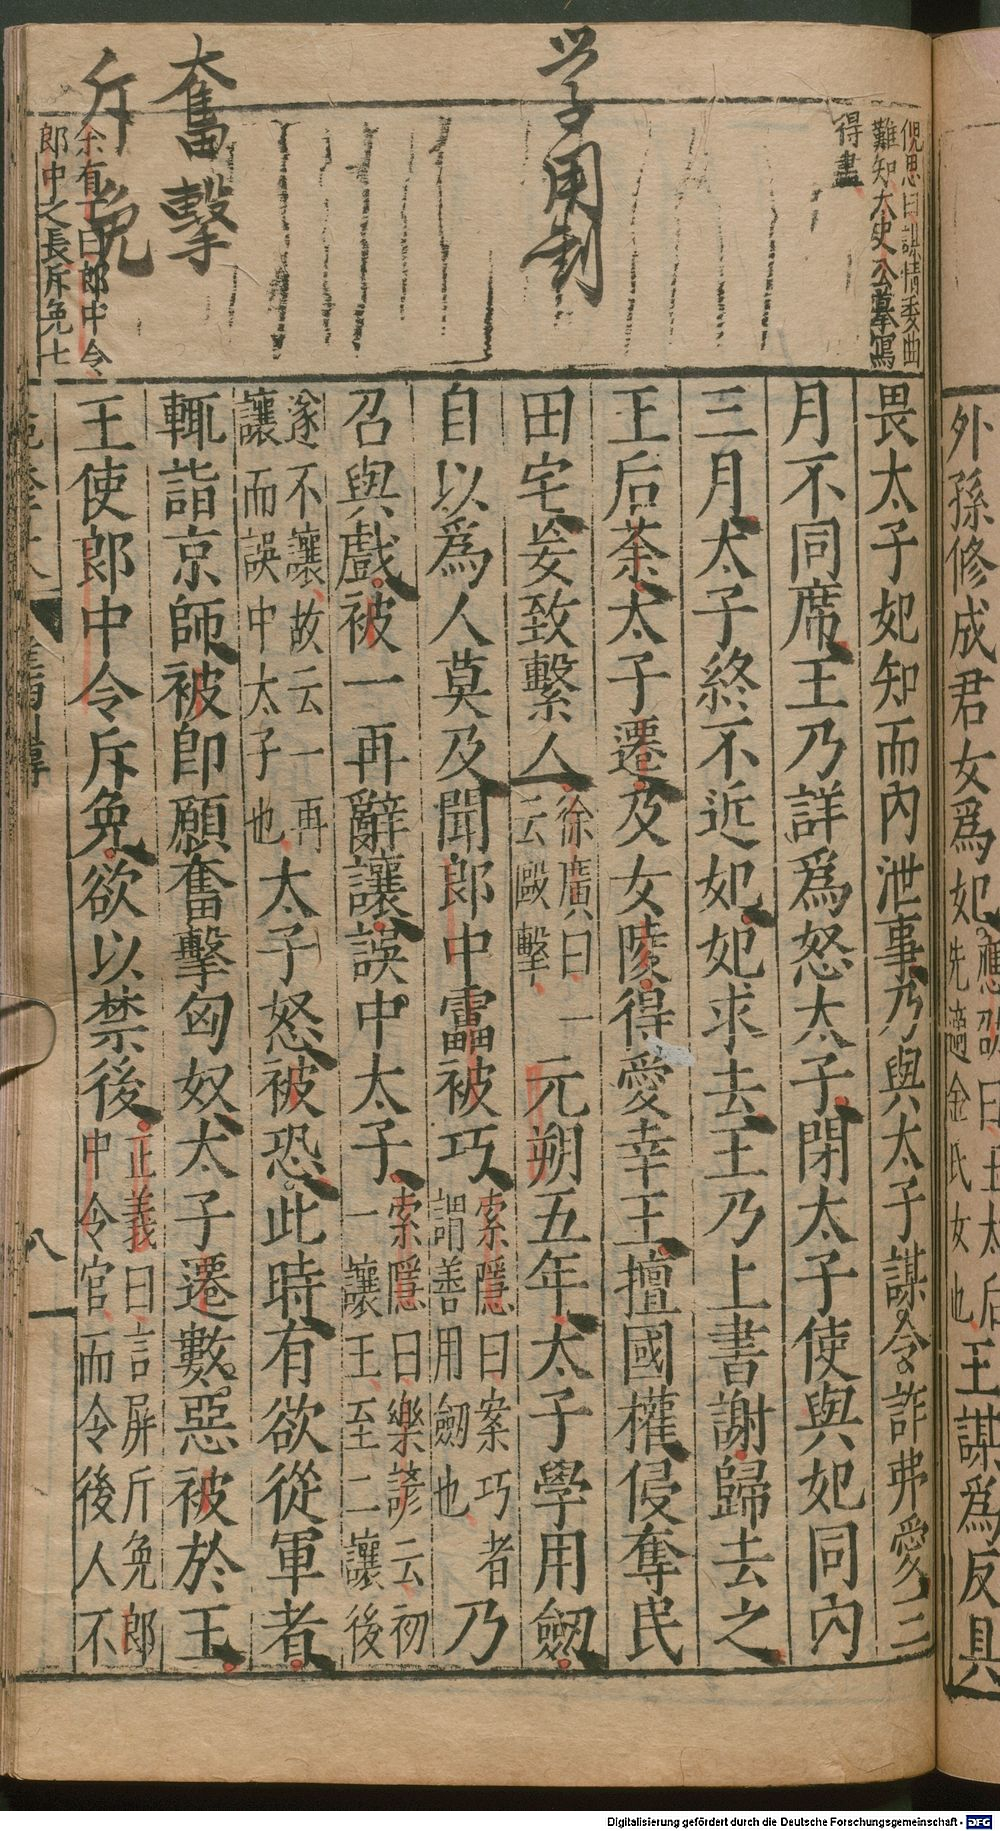 外孫修成君女爲妃應劭曰王太后先適金氏女也王謀爲反具
倪思曰謀情委曲
難知太史公摹寫
得盡
学用剣
奮擊
斥免
余有丁曰郎中令
郎中之長斥免七
畏太子妃知而內泄事乃與太子謀令詐弗愛三
月不同席王乃詳爲怒太子閉太子使與妃同內
三月太子終不近妃妃求去王乃上書謝歸去之
王后荼太子遷及女陵得愛幸王擅國權侵奪民
田宅妄致繫人徐廣曰一云毆擊元朔五年太子學用劒
自以爲人莫及聞郎中靁被巧索隱曰案巧者謂善用劒也乃
召與戲被一再辭讓誤中太子索隱曰樂諺云初一讓王至二讓後
遂不讓故云一再讓而誤中太子也太子怒被恐此時有欲從軍者
輒詣京師被卽願奮擊匈奴太子遷數惡被於王
王使郎中令斥免欲以禁後正義曰言屏斤免郎中令官而令後人不
八
Digitalisierung gefördert durch die Deutsche Forschungsgemeinschaft - DFG